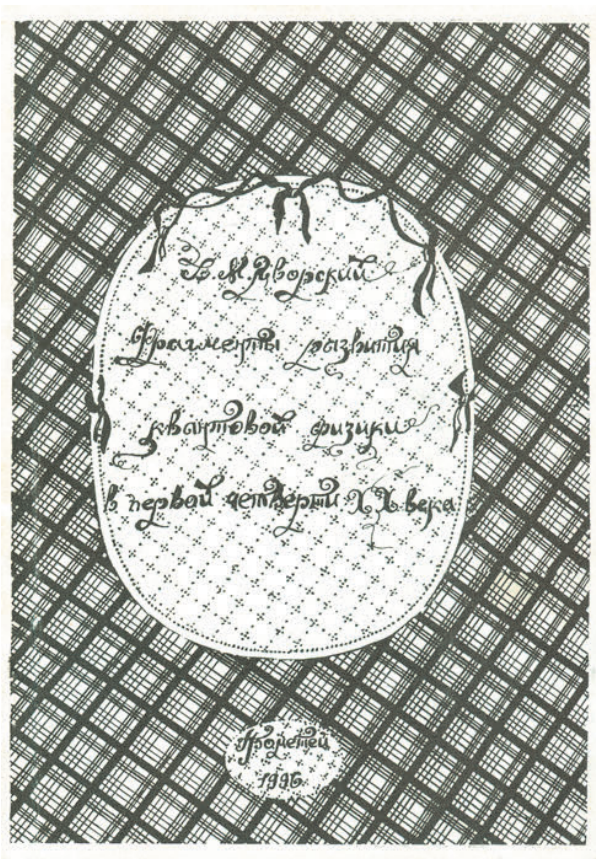 Б.М.Яворский
Фрагменты развития
квантовой физики
в первой четверти XX века
Прометей
1996